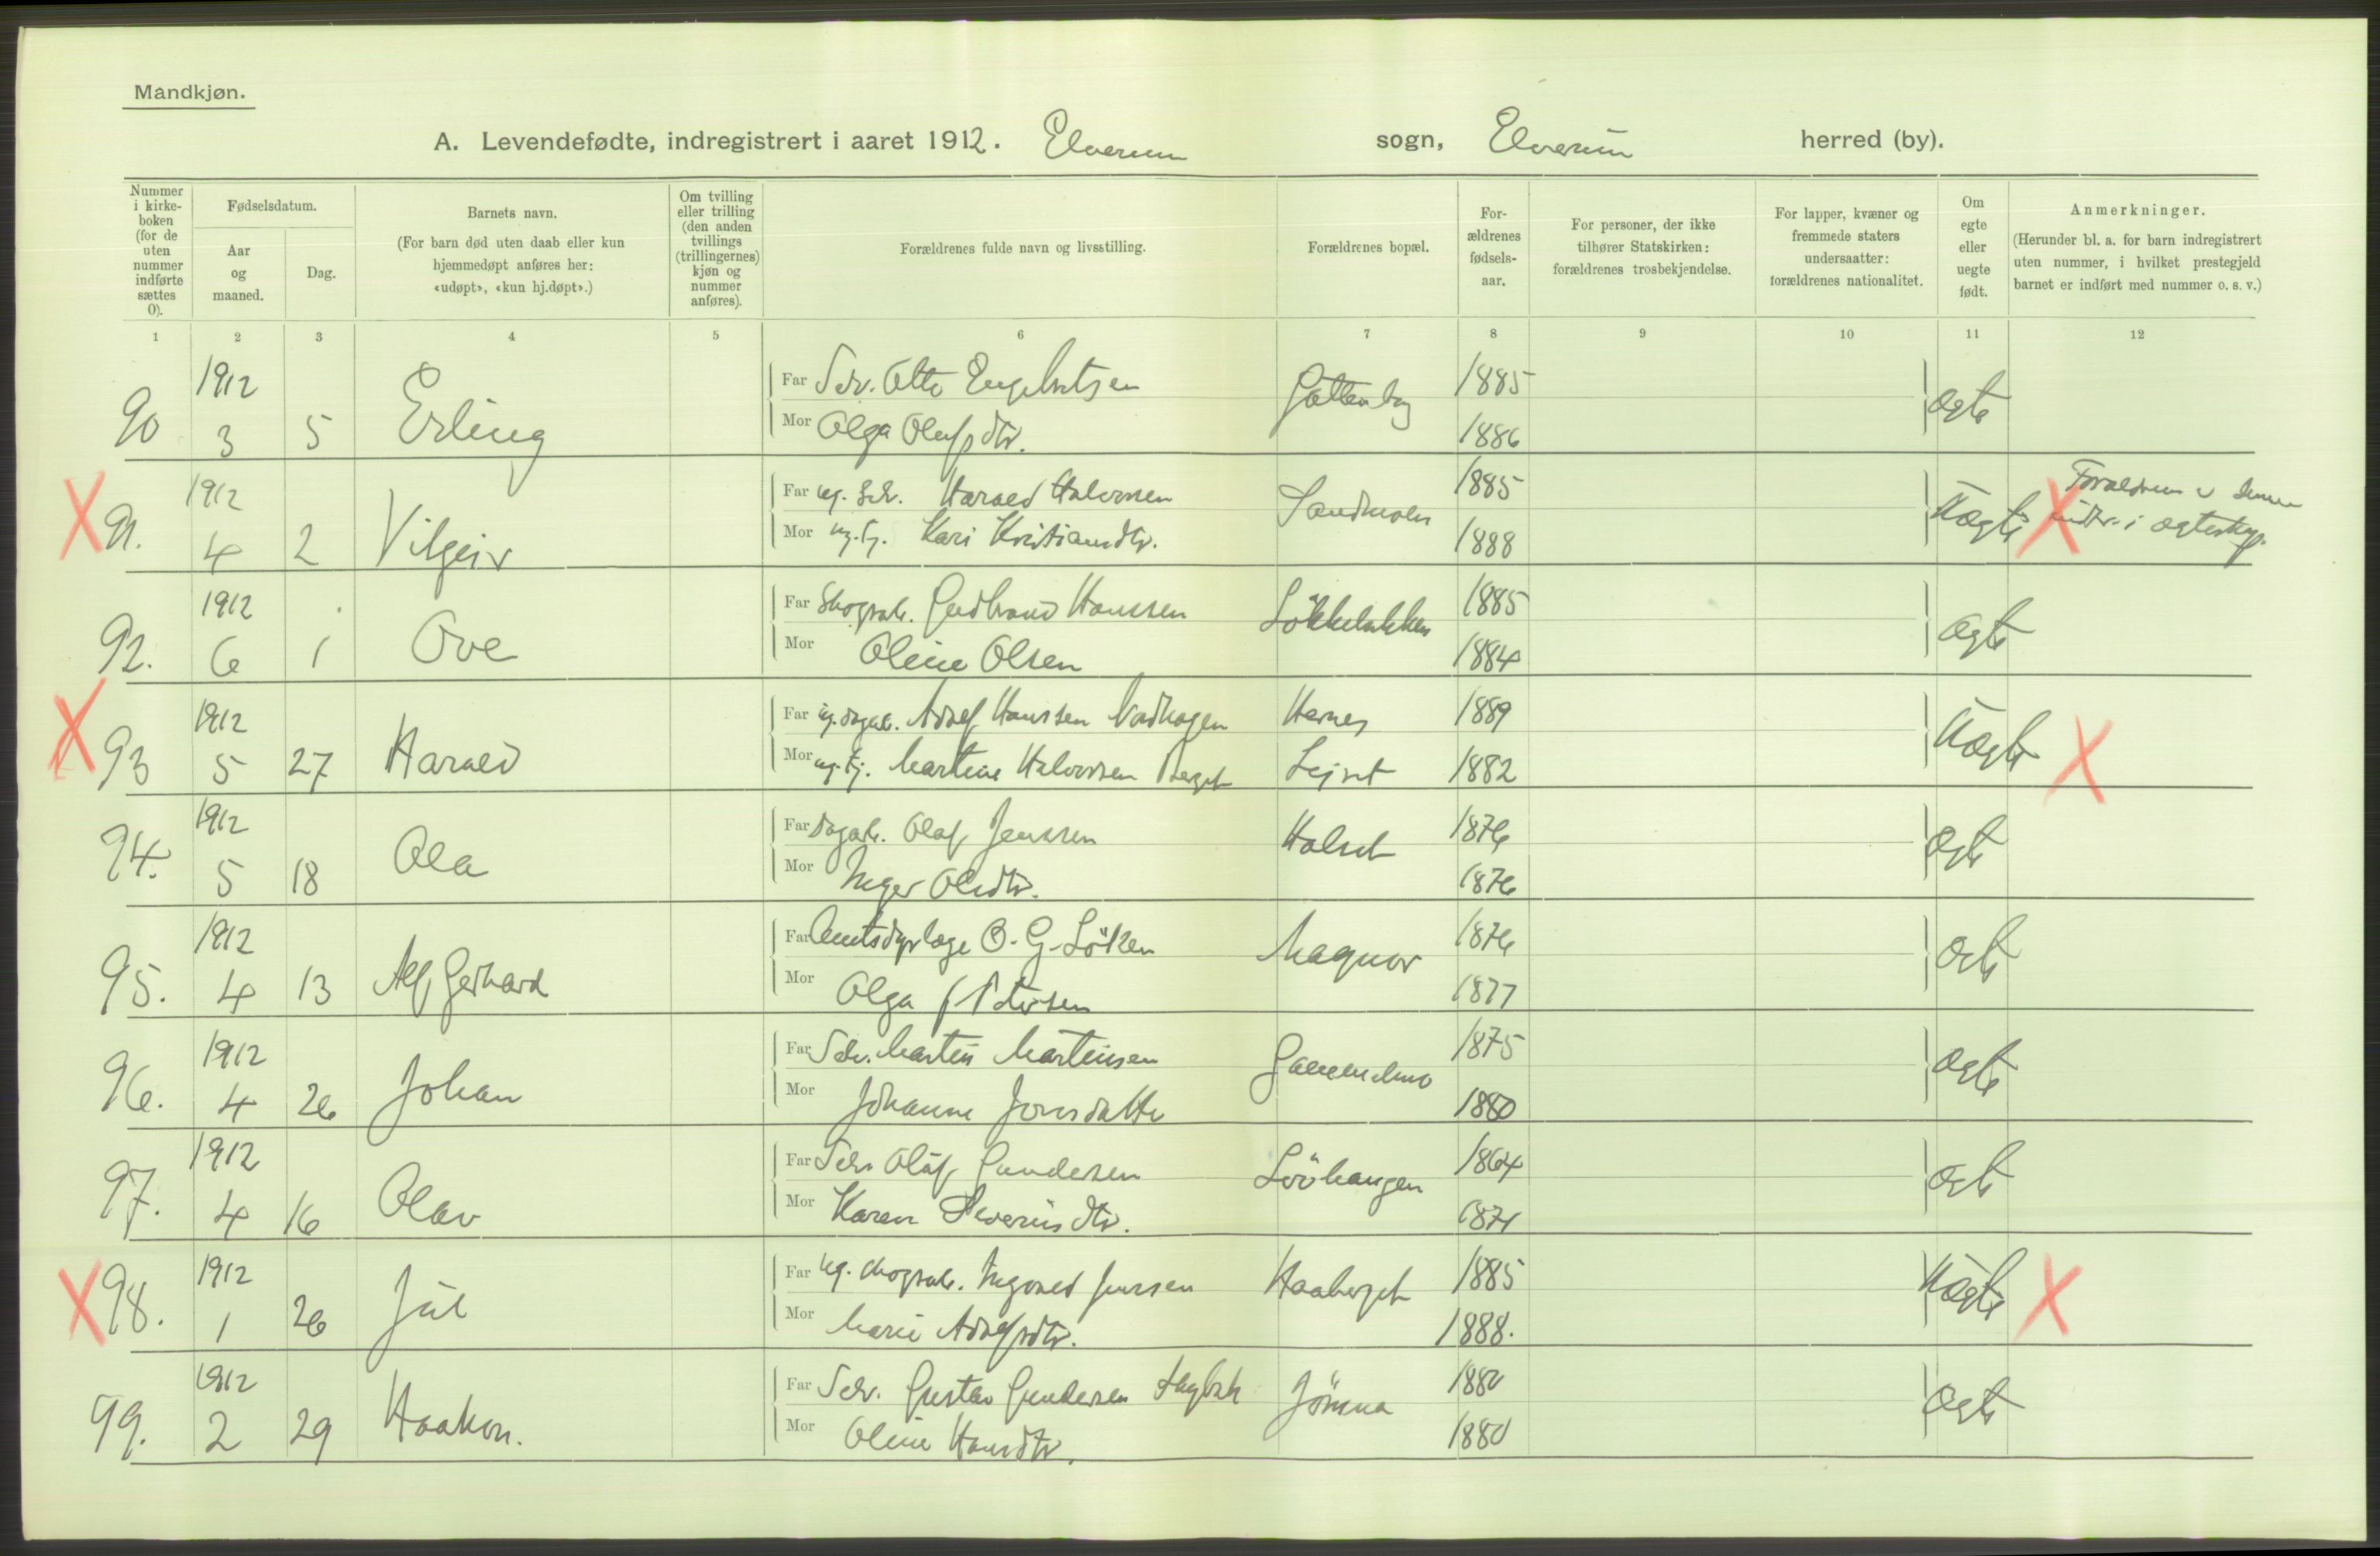 Mandkjøn.
A. Levendefødte, indregistrert i aaret 1912. Elverum sogn, Elverum herred (by).
Nummer i kirke-boken (for de uten nummer indførte sættes 0).
Fødselsdatum.
Aar og maaned.
Dag.
Barnets navn.
(For barn død uten daab eller kun hjemmedøpt anføres her: «udøpt», «kun hj.døpt».)
Om tvilling eller trilling (den anden tvillings (trillingernes) kjøn og nummer anføres).
Forældrenes fulde navn og livsstilling.
Forældrenes bopæl.
For-ældrenes fødsels-aar.
For personer, der ikke tilhører Statskirken: forældrenes trosbekjendelse.
For lapper, kvæner og fremmede staters undersaatter: forældrenes nationalitet.
Om egte eller uegte født.
Anmerkninger.
(Herunder bl. a. for barn indregistrert uten nummer, i hvilket prestegjeld barnet er indført med nummer o. s. v.)
1 2 3 4 5 6 7 8 9 10 11 12
1912 Far Selv. Otto Engebretsen 1885
90 3 5 Erling Mor Olga Olafsdtr. 1886 ægte
1912 Far ug. Selv. Harald Halvorsen 1885
91. 4 2 Vilgeir Mor ug. tj. Kari Kristiansdtr. 1888 Uægte
1912 Far Skogsarb. Gudbrand Hanssen Lökkebakken 1885
92. 6 1 Ove Mor Oline Olsen 1884 ægte
1912 Far ug. dagarb. Adolf Hanssen Hernes 1889
93 5 27 Harald Mor ug. tj. Martine Halvorsen Berget 1882 Uægte
1912 Far Dagarb. Olaf Jenssen Holset 1876
94. 5 18 Ola Mor Inger Olsdtr. 1876 ægte
1912 Far Amtsdyrlæge O. G. Löken Magnor 1876
95. 4 13 Alf Gerhard Mor Olga f. Petersen 1877 ægte
1912 Far Selv. Martin Martinsen Gammelmo 1875
96. 4 26 Johan Mor Johanne Jonsdatter 1880 ægte
1912 Far Selv. Olaf Gundersen Lövhaugen 1864
97. 4 16 Olav Mor Karen Severinsdtr. 1871 ægte
1912 Far ug. skogsarb. Ingvald Jenssen Haaberget 1885
98. 1 26 Jul Mor Marie Adolfsdtr. 1888. Uægte
1912 Far Selv. Gustav Gundersen Jömna 1880
99. 2 29 Haakon. Mor Oline Hansdtr. 1880 ægte